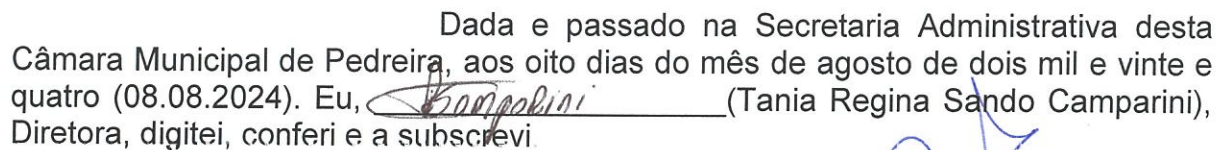 Dada e passado na Secretaria Administrativa desta
Câmara Municipal de Pedreira, aos oito dias do mês de agosto de dois mil e vinte e
quatro (08.08.2024). Eu, (Tania Regina Sando Camparini),
Diretora, digitei, conferi e a subscrevi